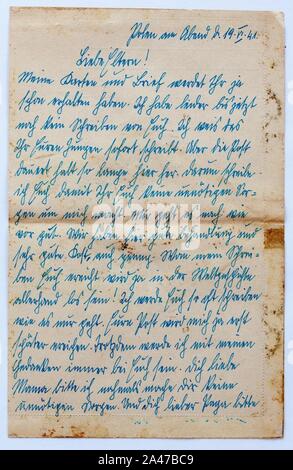 Polen am Abend d. 19. VI. 41.
Liebe Eltern!
Meine Karten und Brief werdet Ihr ja
schon erhalten haben. Ich habe leider bis jetzt
noch kein Schreiben von Euch. Ich weis das
Ihr Euren Jungen sofort schreibt. Aber die Post
dauert halt so lange hier her. Darum schreibe
ich Euch damit Ihr Euch keine unnötigen Sor-
gen um mich macht. Mir geht es nach wie
vor gut. Wir haben hier gute und
sehr gute Kost, auch genug. Wenn mein Schrei-
ben Euch erreicht wird ja in der Weltgeschichte
allerhand los sein! Ich werde Euch so oft schreiben
wie es nur geht. Eure Post wird mich ja erst
später erreichen. Trotzdem werde ich mit meinen
Gedanken immer bei Euch sein. Dich liebe
Mama bitte ich nochmals mache Dir keine
unnötigen Sorgen. Und Dich lieber Papa bitte
alamy
Image ID: 2A47BC9
www.alamy.com